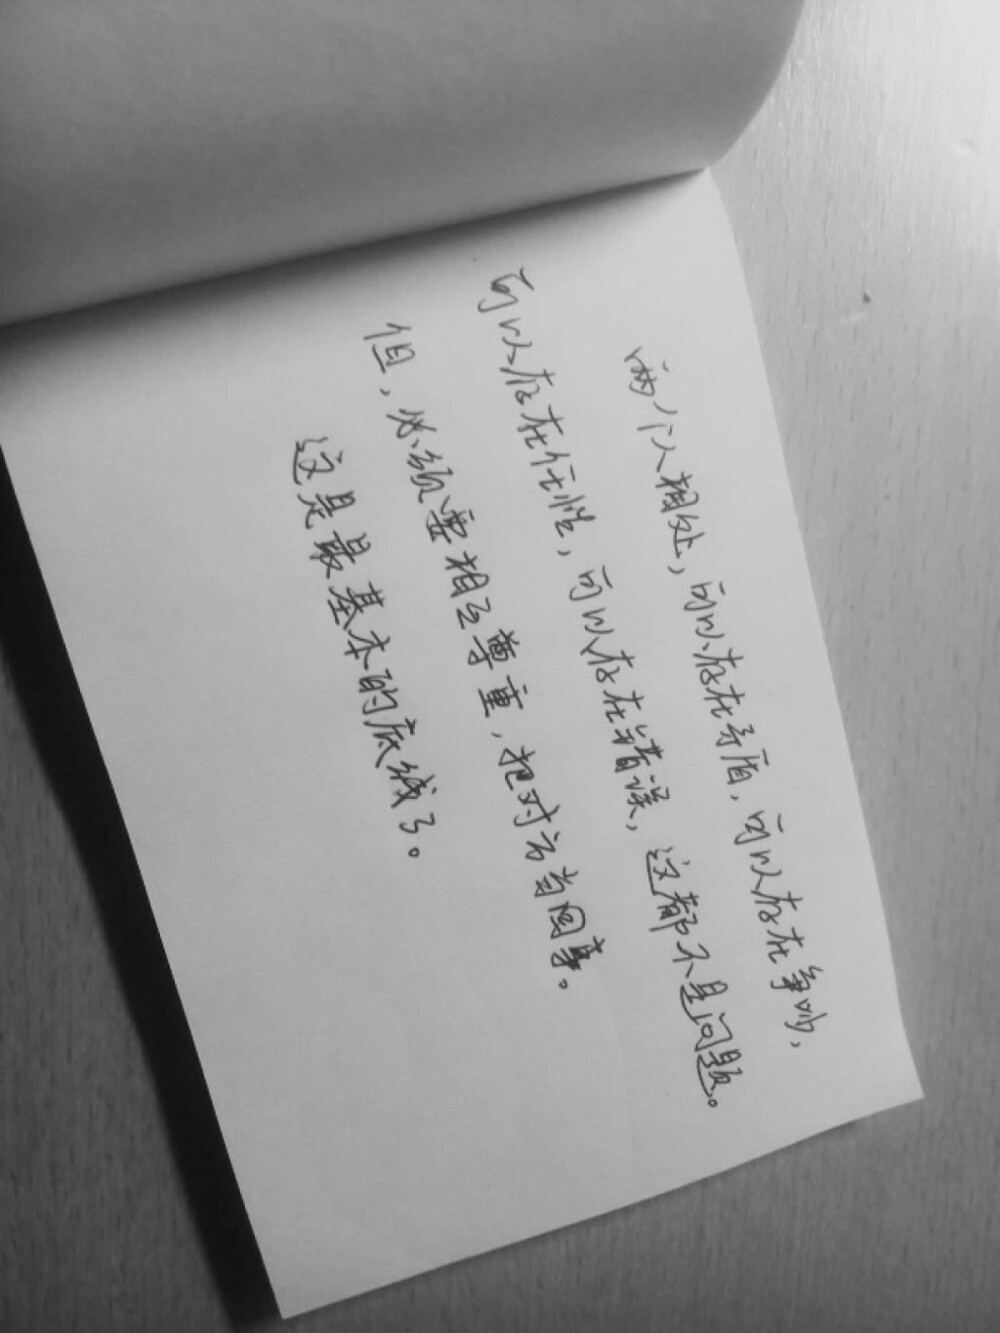 两个人相处，可以存在矛盾，可以存在争吵，
可以存在任性，可以存在错误，这都不是问题。
但，必须要相互尊重，把对方当回事。
这是最基本的底线了。